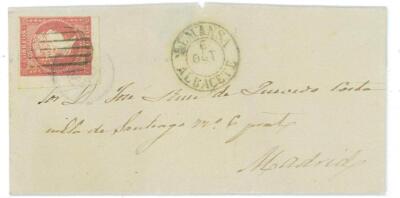 CORREOS
ALMANSA
6
OCT
ALBACETE
Sor D. José Ruiz de Quevedo Costa
nilla de Santiago nº 6 pral
Madrid